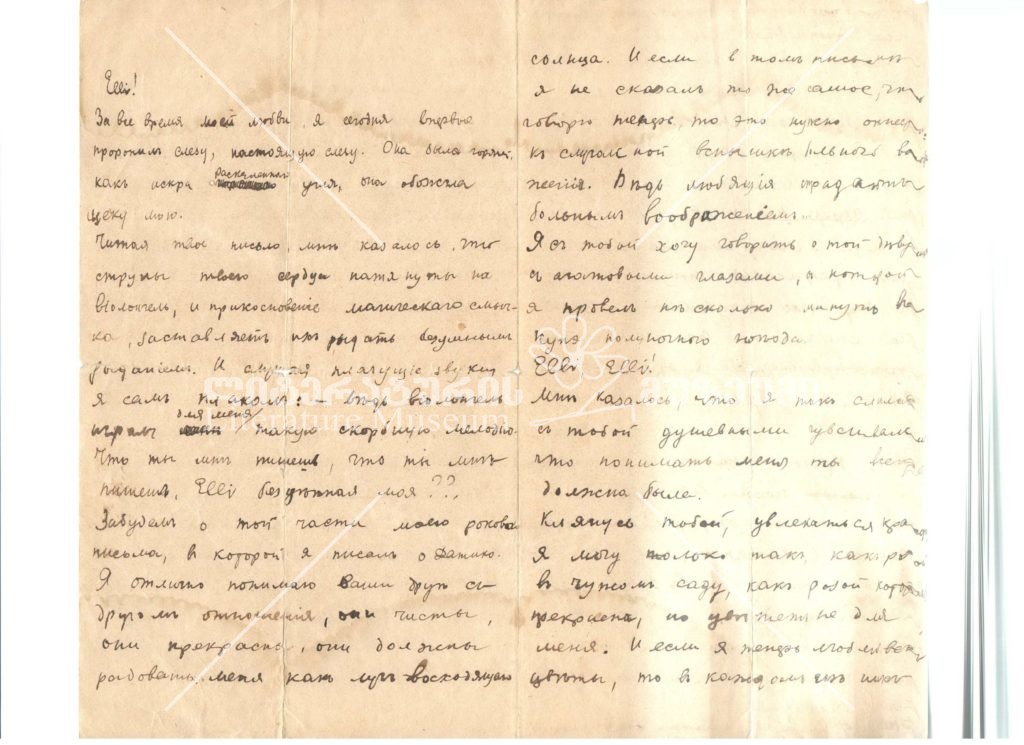 Elli!
За все время моей любви я сегодня впервые
проронилъ слезу, настоящую слезу. Она была горяча,
какъ искра раскаленнаго угля, она обожгла
щеку мою.
Читая твое письмо, мнѣ казалось, что
струны твоего сердца натянуты на
віолончель, и прикосновеніе магическаго смыч-
ка, заставляетъ ихъ рыдать безумнымъ
рыданіемъ. И слушая плачущіе звуки
я самъ плакалъ: – Вѣдь віолончель
играла для меня такую скорбную мелодію.
Что ты мнѣ пишешь, что ты мнѣ
пишешь, Elli безцѣнная моя??
Забудемъ о той части моего рокова
письма, в которой я писалъ о Датико.
Я отлично понимаю ваши другъ съ
другомъ отношенія, они чисты,
они прекрасны, они должны
радовать меня какъ лучъ восходящаго
солнца. И если в томъ письмѣ
я не сказалъ то же самое, что
говорю теперь, то это нужно отнести
къ случайной вспышкѣ больного
Вѣдь любящія страдаютъ
больнымъ воображеніемъ.
Я съ тобой хочу говорить о той
съ агатовыми глазами, с которой
я провелъ нѣсколько минутъ въ
купэ полуночного поѣзда.
Elli Elli!
Мнѣ казалось, что я такъ слился
съ тобой душевными чувствами
что понимать меня ты всегда
должна была.
Клянусь тобой, увлекаться
я могу только такъ, какъ
в чужомъ саду, какъ розой которая
прекрасна, но цвѣтетъ не для
меня. И если я теперь люблю всѣ
цвѣты, то в каждомъ изъ нихъ
ლიტერატურის მუზეუმი
Literature Museum